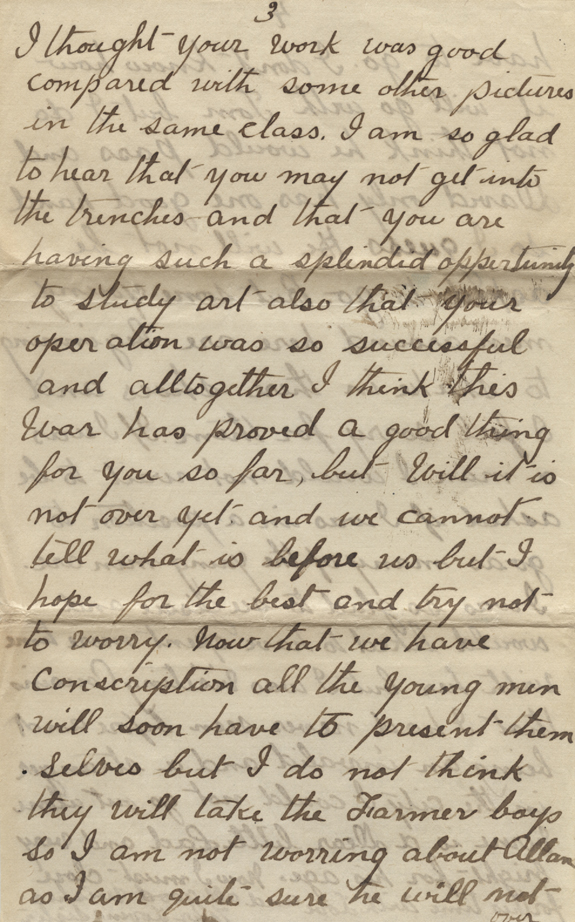 3
I thought your work was good
compared with some other pictures
in the same class. I am so glad
to hear that you may not get into
the trenches and that you are
having such a splendid oppertunity
to study art also that your
operation was so successful
and alltogether I think this
War has proved a good thing
for you so far, but Will it is
not over yet and we cannot
tell what is before us but I
hope for the best and try not
to worry. Now that we have
Conscription all the young men
will soon have to present them
. selves but I do not think
they will take the Farmer boys
so I am not worring about Allan
as I am quite sure he will not
over